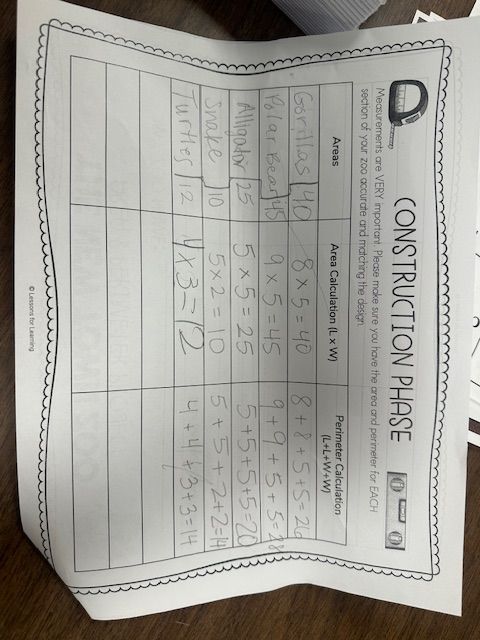 CONSTRUCTION PHASE
Measurements are VERY important. Please make sure you have the area and perimeter for EACH
section of your zoo accurate and matching the design.
Areas Area Calculation (L x W) Perimeter Calculation
(L+L+W+W)
Gorillas 40 8 x 5 = 40 8 + 8 + 5 + 5 = 26
Polar Bear 45 9 x 5 = 45 9 + 9 + 5 + 5 = 28
Alligator 25 5 x 5 = 25 5 + 5 + 5 + 5 = 20
Snake 10 5 x 2 = 10 5 + 5 + 2 + 2 = 14
Turtles 12 4 x 3 = 12 4 + 4 + 3 + 3 = 14
© Lessons for Learning